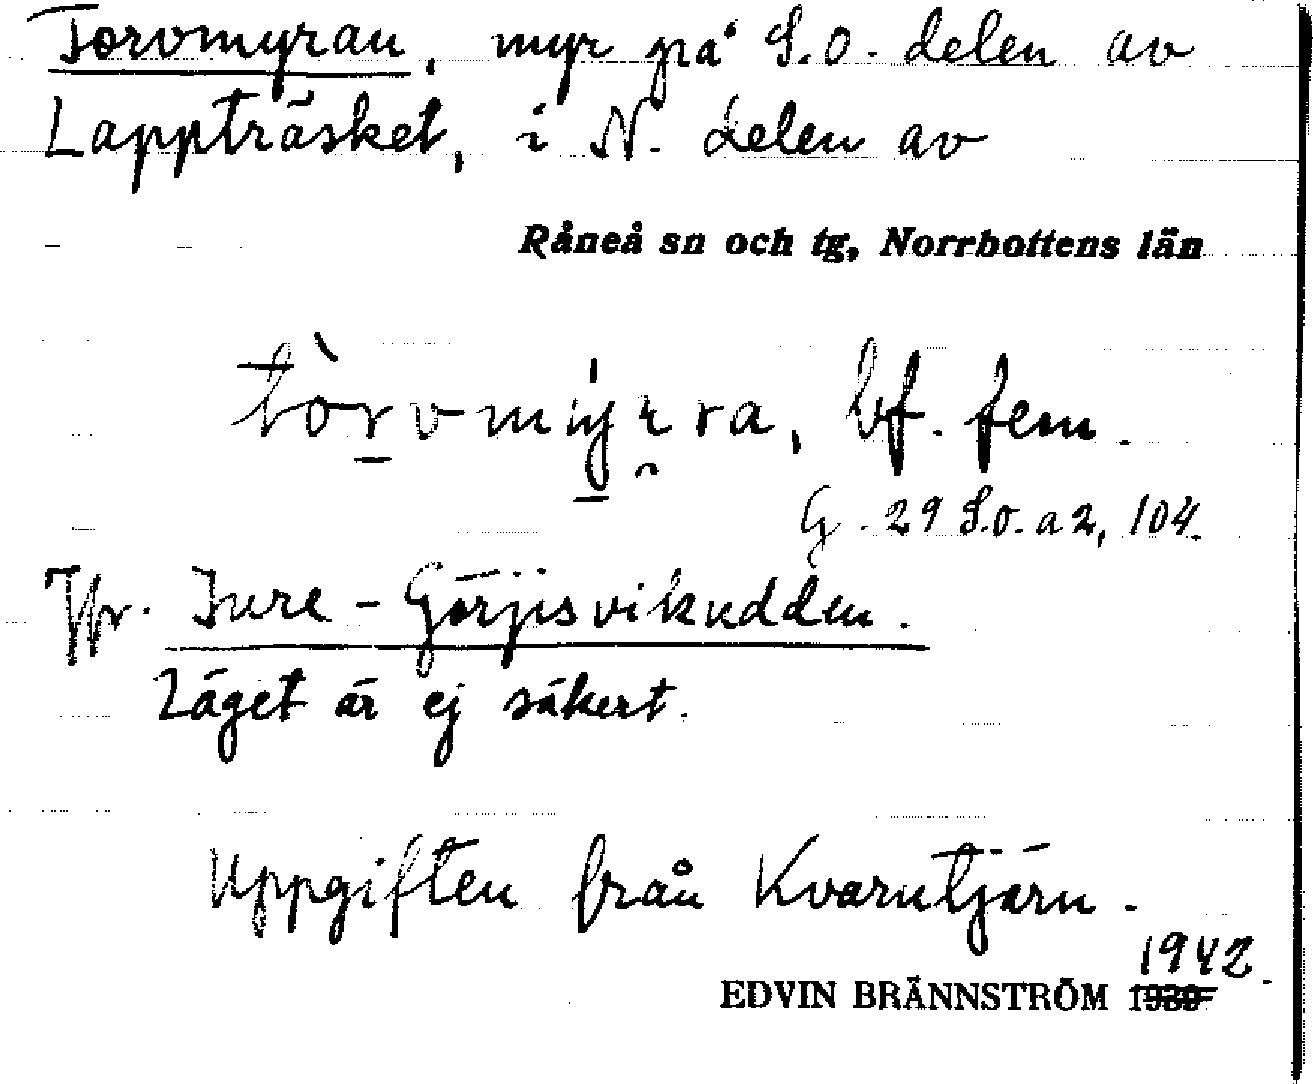 Torvmyran, myr på S.O. delen av
Lappträsket, i N. delen av
Råneå sn och tg, Norrbottens län
tòrvmyrra, bf. fem.
G. 29 S.O. a 2, 104.
Jfr. Ture-Görjisvikudden.
Läget är ej säkert.
Uppgiften från Kvarntjärn.
1942
EDVIN BRÄNNSTRÖM 1930